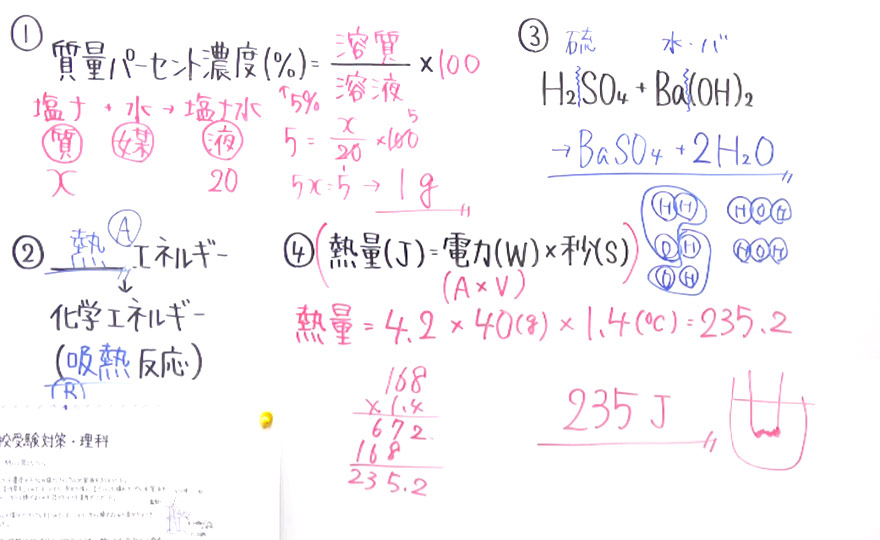 ①
質量パーセント濃度(%)=溶質/溶液×100
↑5%
塩+水→塩水
質 媒 液
x 20
5=x/20×100 5
5x=5→1g
② 熱エネルギー
A
↓
化学エネルギー
(吸熱反応)
B
③ 硫 水・バ
H₂SO₄+Ba(OH)₂
→BaSO₄+2H₂O
H H H O H
O H H O H
O H
④(熱量(J)=電力(W)×秒(S))
(A×V)
熱量=4.2×40(g)×1.4(℃)=235.2
168
×1.4
672
168
235.2
235J
校受験対策・理科